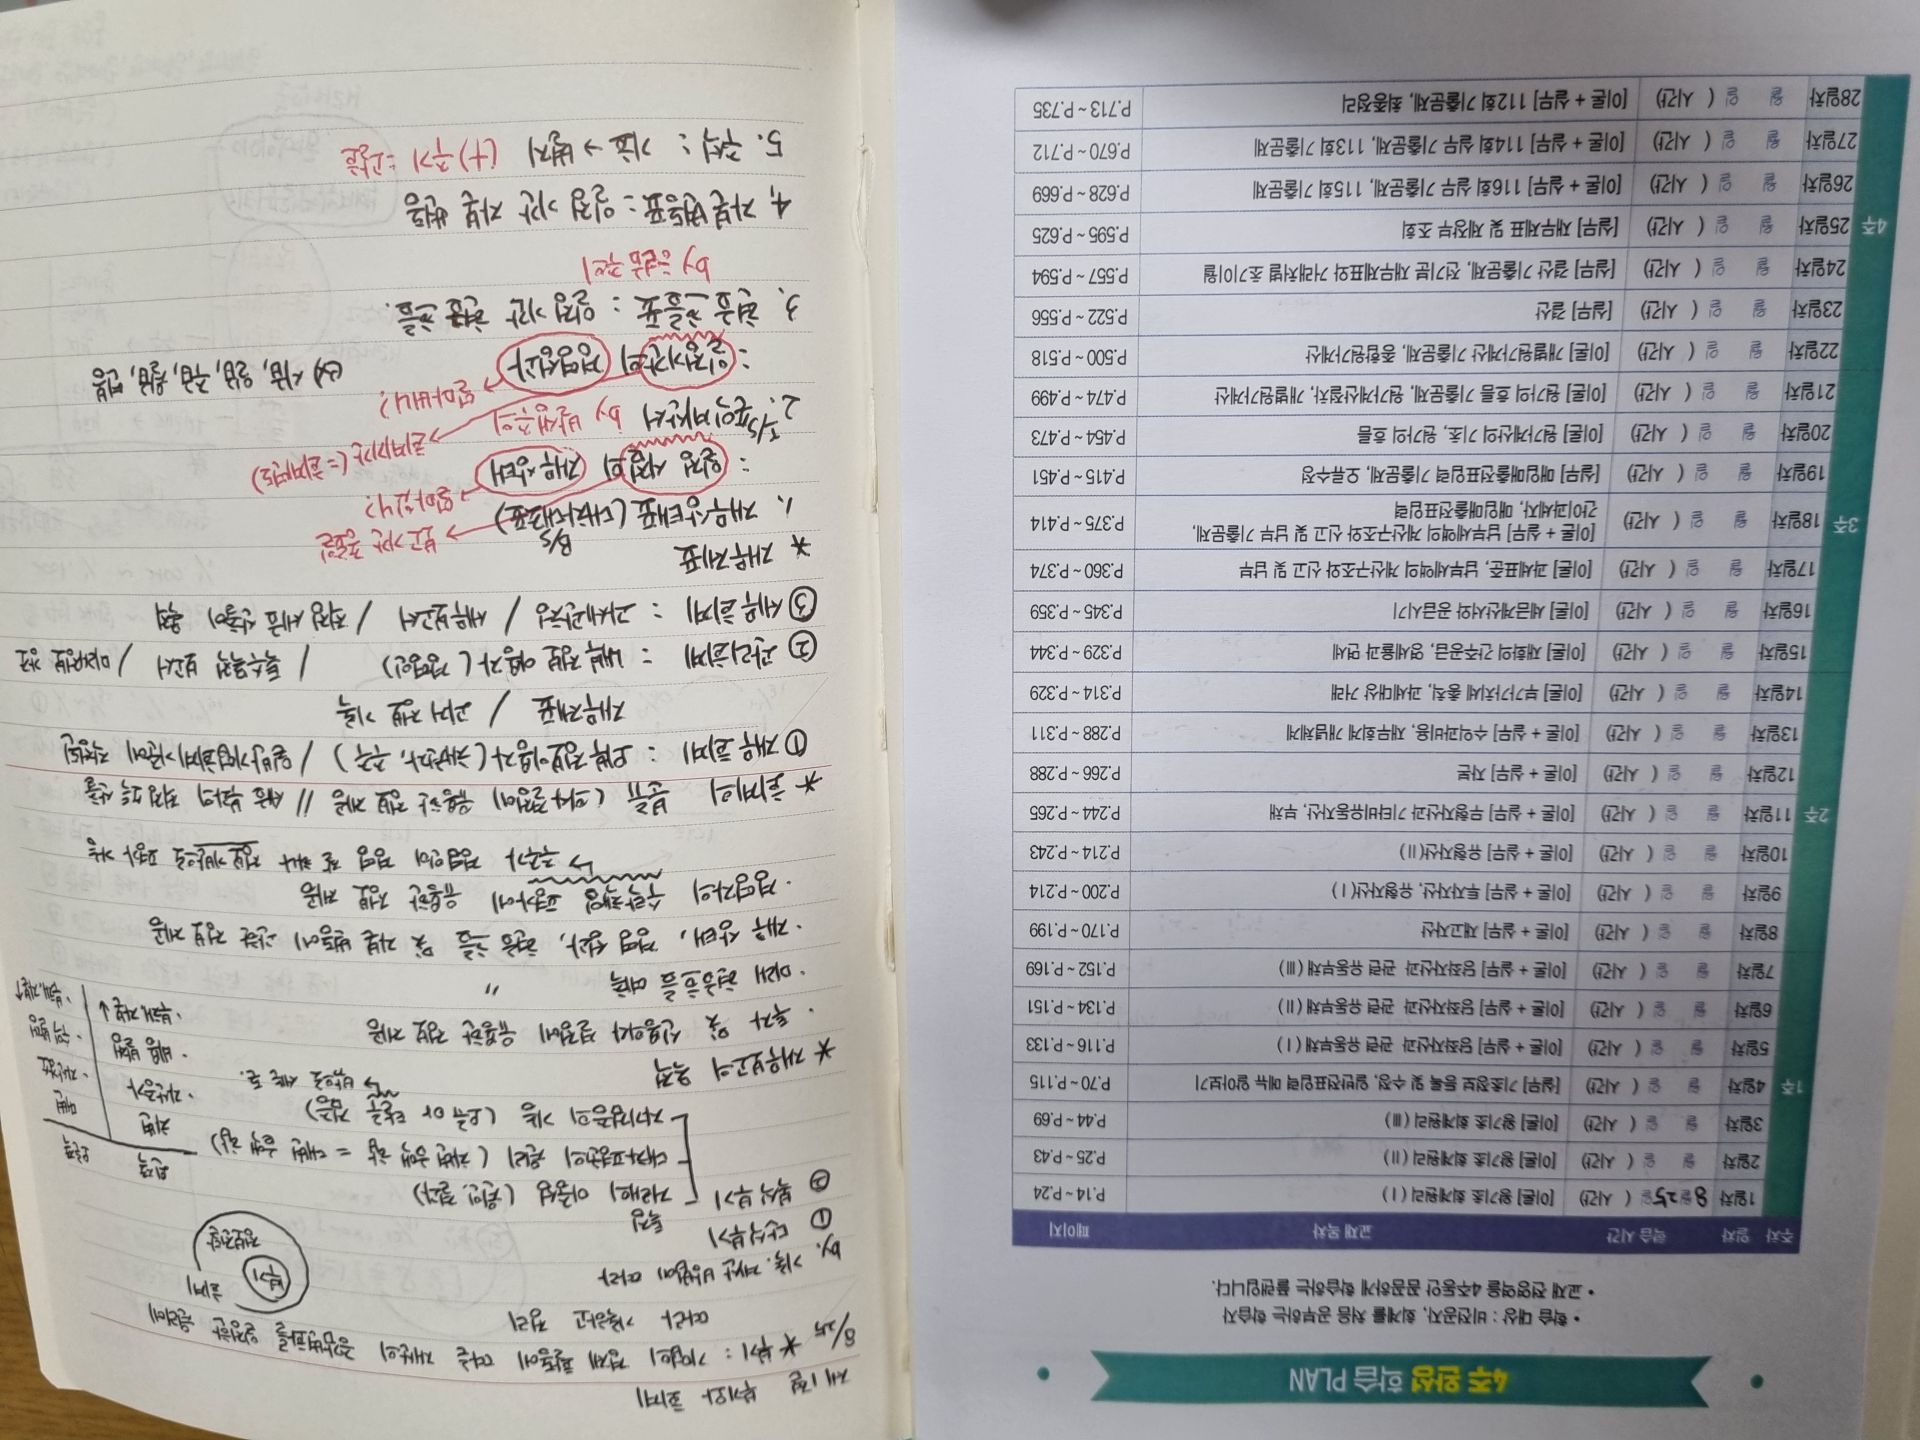 4주 완성 학습 PLAN
• 학습 대상 : 비전공자, 회계를 처음 공부하는 학습자
• 교재 전영역을 4주동안 꼼꼼하게 학습하는 플랜입니다.
주차 일차 학습 시간 교재 목차 페이지
1주
1일차 8월 25일 ( 시간) [이론] 왕기초 회계원리 ( I ) P.14 ~ P.24
2일차 월 일 ( 시간) [이론] 왕기초 회계원리 ( II ) P.25 ~ P.43
3일차 월 일 ( 시간) [이론] 왕기초 회계원리 ( III ) P.44 ~ P.69
4일차 월 일 ( 시간) [실무] 기초정보 등록 및 수정, 일반전표입력 메뉴 알아보기 P.70 ~ P.115
5일차 월 일 ( 시간) [이론 + 실무] 당좌자산과 관련 유동부채 ( I ) P.116 ~ P.133
6일차 월 일 ( 시간) [이론 + 실무] 당좌자산과 관련 유동부채 ( II ) P.134 ~ P.151
7일차 월 일 ( 시간) [이론 + 실무] 당좌자산과 관련 유동부채 ( III ) P.152 ~ P.169
2주
8일차 월 일 ( 시간) [이론 + 실무] 재고자산 P.170 ~ P.199
9일차 월 일 ( 시간) [이론 + 실무] 투자자산, 유형자산( I ) P.200 ~ P.214
10일차 월 일 ( 시간) [이론 + 실무] 유형자산( II ) P.214 ~ P.243
11일차 월 일 ( 시간) [이론 + 실무] 무형자산과 기타비유동자산, 부채 P.244 ~ P.265
12일차 월 일 ( 시간) [이론 + 실무] 자본 P.266 ~ P.288
13일차 월 일 ( 시간) [이론 + 실무] 수익과비용, 재무회계 개념체계 P.288 ~ P.311
14일차 월 일 ( 시간) [이론] 부가가치세 총칙, 과세대상 거래 P.314 ~ P.329
3주
15일차 월 일 ( 시간) [이론] 재화의 간주공급, 영세율과 면세 P.329 ~ P.344
16일차 월 일 ( 시간) [이론] 세금계산서와 공급시기 P.345 ~ P.359
17일차 월 일 ( 시간) [이론] 과세표준, 납부세액의 계산구조와 신고 및 납부 P.360 ~ P.374
18일차 월 일 ( 시간) [이론 + 실무] 납부세액의 계산구조와 신고 및 납부 기출문제,
간이과세자, 매입매출전표입력 P.375 ~ P.414
19일차 월 일 ( 시간) [실무] 매입매출전표입력 기출문제, 오류수정 P.415 ~ P.451
20일차 월 일 ( 시간) [이론] 원가계산의 기초, 원가 흐름 P.454 ~ P.473
21일차 월 일 ( 시간) [이론] 원가의 흐름 기출문제, 원가계산절차, 개별원가계산 P.474 ~ P.499
4주
22일차 월 일 ( 시간) [이론] 개별원가계산 기출문제, 종합원가계산 P.500 ~ P.518
23일차 월 일 ( 시간) [실무] 결산 P.522 ~ P.556
24일차 월 일 ( 시간) [실무] 결산 기출문제, 전기분 재무제표와 거래처별 초기이월 P.557 ~ P.594
25일차 월 일 ( 시간) [실무] 재무제표 및 제장부 조회 P.595 ~ P.625
26일차 월 일 ( 시간) [이론 + 실무] 116회 실무 기출문제, 115회 기출문제 P.628 ~ P.669
27일차 월 일 ( 시간) [이론 + 실무] 114회 실무 기출문제, 113회 기출문제 P.670 ~ P.712
28일차 월 일 ( 시간) [이론 + 실무] 112회 기출문제, 최종정리 P.713 ~ P.735
제1절 부기와 회계
8/25 * 부기 : 기업이 경제 활동에 따른 재산의 증감변화를 일정한 원리에
따라 기록하고 정리
부기
회계
by. 기록, 계산 방법에 따라
① 단식부기
② 복식부기
거래의 이중성 (원인, 결과)
대차평균의 원리 (차변 금액 합 = 대변 금액 합)
자기검증의 기능 (오류 or 탈루 검증)
왼쪽 오른쪽
차변 대변
· 비용 발생 · 수익 발생
* 재무보고의 목적
· 투자 및 신용의사 결정에 유용한 정보 제공
· 미래 현금흐름 예측 〃
· 재무 상태, 경영 성과, 현금 흐름 및 자본 변동에 관한 정보 제공
· 경영자의 수탁책임 평가에 유용한 정보 제공
* 회계의 분류
① 재무 회계 : 외부 정보이용자 (투자자, 주주)
재무제표 / 과거 정보 기록
② 관리회계 : 내부 정보 이용자 (경영인) / 특수목적 보고서 / 미래정보 위주
③ 세무 회계 : 과세관청 / 세무보고서
* 재무제표
1. 재무상태표 (대차대조표) B/S
: 일정 시점의 재무상태
얼마있니?
2. I/S 포괄손익계산서 by 발생주의
: 일정기간의 경영성과
얼마버니?
3. 현금 흐름표 : 일정 기간 현금 흐름.
by 현금 주의
4. 자본변동표 = 일정 기간 자본 변동
5. 주석 : 기호 → 별지 (+) 추가 =